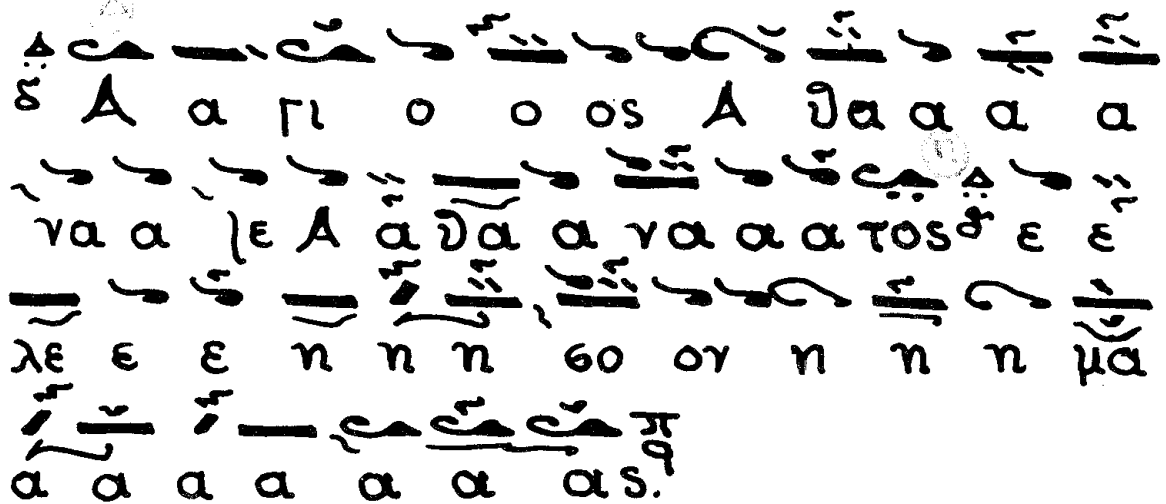 Α α γι ο ο ος Α θα α α α
να α |ε Α α θα α να α α τος ε ε
λε ε ε η η η σο ον η η η μα
α α α α α α ας.